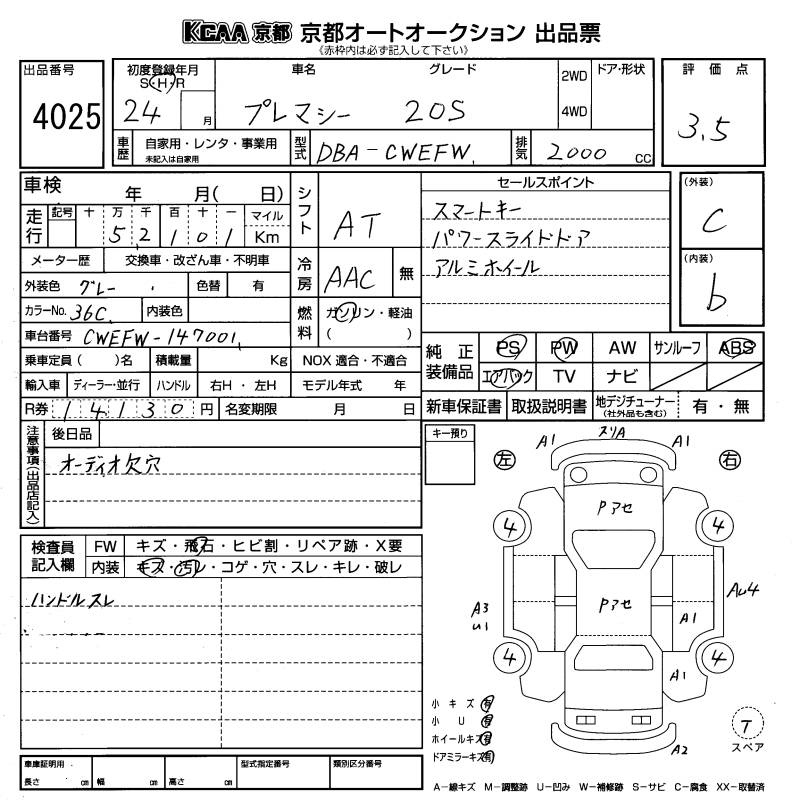 KCAA 京都 京都オートオークション 出品票
《赤枠内は必ず記入して下さい》
出品番号
4025
初度登録年月
S・H・R
24 月
車名
グレード
プレマシー 20S
2WD
4WD
ドア・形状
評価点
3.5
車歴
自家用・レンタ・事業用
未記入は自家用
型式
DBA-CWEFW
排気
2000 cc
車検 年 月( 日)
走行
記号 十 万 千 百 十 一 マイル
5 2 1 0 1 Km
メーター歴 交換車・改ざん車・不明車
外装色 グレー 色替 有
カラーNo. 36C 内装色
車台番号 CWEFW-147001
乗車定員( )名 積載量 Kg
輸入車 ディーラー・並行 ハンドル 右H・左H
R券 14130円 名変期限 月 日
シフト AT
冷房 AAC 無
燃料 ガソリン・軽油
( )
NOX 適合・不適合
モデル年式 年
セールスポイント
スマートキー
パワースライドドア
アルミホイール
(外装)
C
(内装)
b
純正装備品
PS PW AW サンルーフ ABS
エアバック TV ナビ
新車保証書 取扱説明書 地デジチューナー(社外品も含む) 有・無
注意事項(出品店記入)
後日品
オーディオ欠穴
キー預り
検査員記入欄
FW キズ・飛石・ヒビ割・リペア跡・X要
内装 キズ・汚レ・コゲ・穴・スレ・キレ・破レ
ハンドルスレ
左
右
A1 スリA A1
Pアセ
4 4
Pアセ
A3
U1
AU4
A1
4 4
A1
A2
小キズ 有
小U 有
ホイールキズ 有
ドアミラーキズ 有
T
スペア
車庫証明用
長さ cm 幅 cm 高さ cm
型式指定番号
類別区分番号
A−線キズ M−調整跡 U−凹み W−補修跡 S−サビ C−腐食 XX−取替済